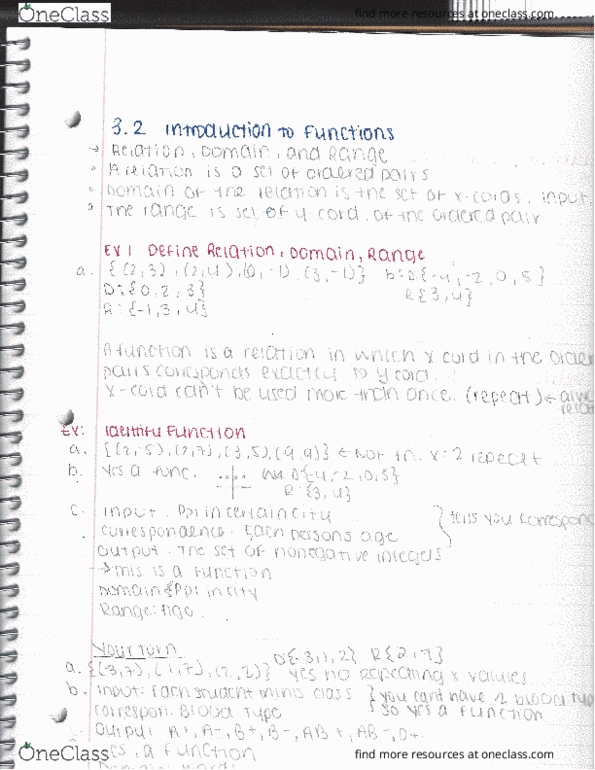 OneClass
find more resources at oneclass.com
3.2 Introduction to Functions
→ Relation, Domain, and Range
• A relation is a set of ordered pairs
• Domain of the relation is the set of x-cords. input.
• The range is set of y-cord. of the ordered pair
EX 1 Define Relation, Domain, Range
a. {(2,3), (2,4), (0,-1) (3,-1)} b: D{-4,-2,0,5}
D: {0,2,3} R{3,4}
R: {-1,3,4}
A function is a relation in which x cord in the
pairs corresponds exactly to y cord.
x-cord can't be used more than once. (repeat) ←
EX: Identify Function
a. {(2,5), (2,7), (3,5), (9,9)} ← Not fn. x: 2 repeat
b. Yes a func. D{-4,-2,0,5}
R: {3,4}
c. input: Ppl in certain city } tells you
correspondence: Each persons age
output: The set of nonnegative integers
→ This is a function
Domain: Ppl in city
Range: Age
Your turn D{-3,1,2} R{2,7}
a. {(-3,7), (1,7), (2,2)} yes no repeating x values
b. input: Each student in this class } you cant have 2 blood
correspon: Blood type so yes a function
Output: A+, A-, B+, B-, AB+, AB-, O+
a function
OneClass
find more resources at oneclass.com